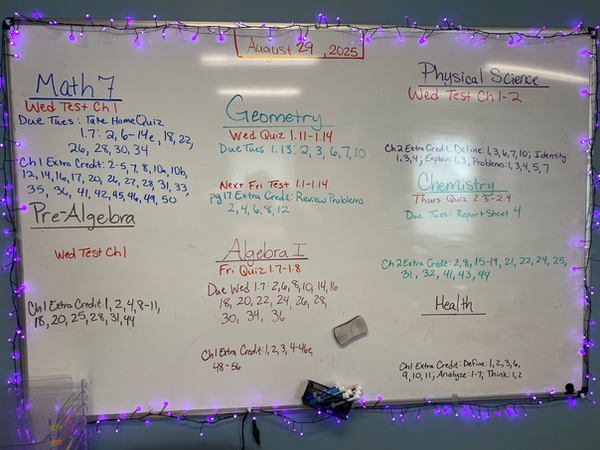 August 29, 2025
Math 7
Wed Test Ch 1
Due Tues: Take Home Quiz
1.7: 2, 6-14e, 18, 22,
26, 28, 30, 34
Ch 1 Extra Credit: 2-5, 7, 8, 10a, 10b,
12, 14, 16, 17, 20, 26, 27, 28, 31, 33,
35, 36, 41, 42, 45, 46, 49, 50
Pre-Algebra
Wed Test Ch 1
Ch 1 Extra Credit: 1, 2, 4, 8-11,
18, 20, 25, 28, 31, 44
Geometry
Wed Quiz 1.11-1.14
Due Tues 1.13: 2, 3, 6, 7, 10
Next Fri Test 1.1-1.14
pg 17 Extra Credit: Review Problems
2, 4, 6, 8, 12
Algebra I
Fri Quiz 1.7-1.8
Due Wed 1.7: 2, 6, 8, 10, 14, 16
18, 20, 22, 24, 26, 28,
30, 34, 36
Ch 1 Extra Credit: 1, 2, 3, 4-46e,
48-56
Physical Science
Wed Test Ch 1-2
Ch 2 Extra Credit: Define: 1, 3, 6, 7, 10; Identify
1, 3, 4; Explain: 1, 3, Problems: 1, 3, 4, 5, 7
Chemistry
Thurs Quiz 2.3-2.4
Due Tues: Report Sheet 4
Ch 2 Extra Credit: 2, 8, 15-19, 21, 22, 24, 25,
31, 32, 41, 43, 44
Health
Ch 1 Extra Credit: Define: 1, 2, 3, 6,
9, 10, 11; Analyze: 1-7; Think: 1, 2